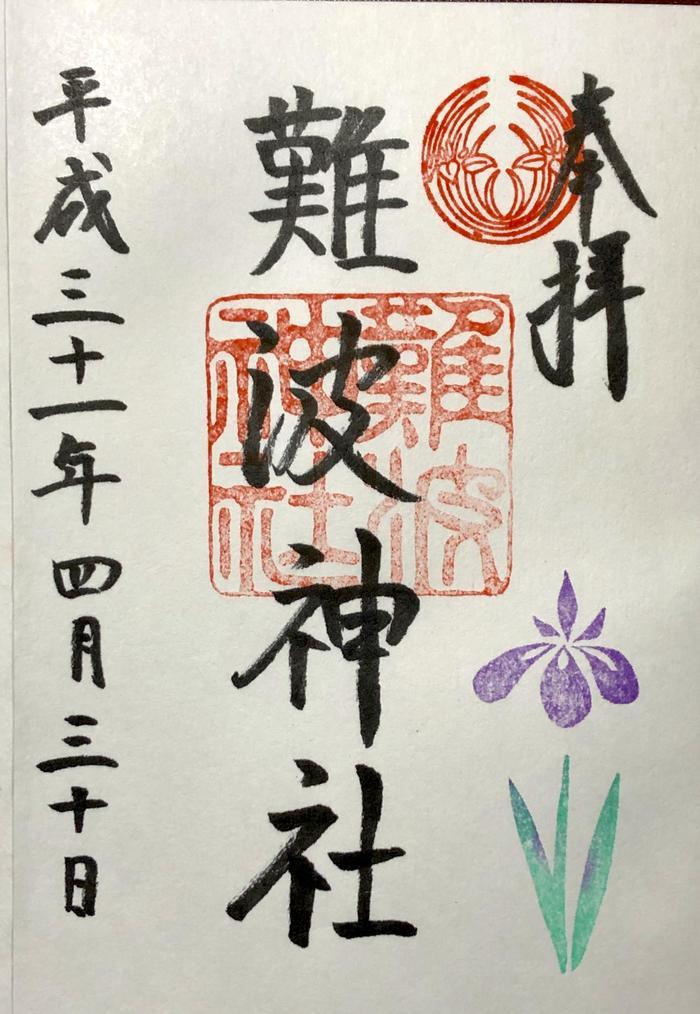 奉拝
難波神社
難波
神社
平成三十一年四月三十日